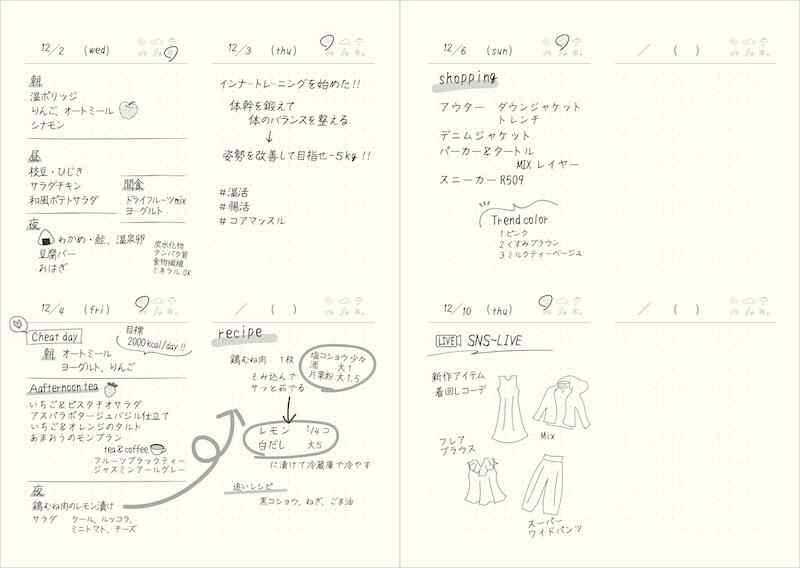 12/2 (wed)
朝
温ポリッジ
りんご、オートミール
シナモン
昼
枝豆・ひじき
サラダチキン
和風ポテトサラダ
間食
ドライフルーツmix
ヨーグルト
夜
わかめ・鮭、温泉卵
豆腐バー
おはぎ
炭水化物
タンパク質
食物繊維
ミネラル OK
12/3 (thu)
インナートレーニングを始めた!!
体幹を鍛えて
体のバランスを整える
↓
姿勢を改善して目指せ-5kg!!
#温活
#腸活
#コアマッスル
12/4 (fri)
Cheat day
目標
2000kcal/day!!
朝 オートミール
ヨーグルト、りんご
Aafternoon tea
いちご&ピスタチオサラダ
アスパラポタージュバジル仕立て
いちご&オレンジのタルト
あまおうのモンブラン
tea&coffee
フルーツブラックティー
ジャスミンアールグレー
夜
鶏むね肉のレモン漬け
サラダ ケール、ルッコラ、
ミニトマト、チーズ
/ ( )
recipe
鶏むね肉 1枚
もみ込んで
サッと茹でる
塩コショウ 少々
酒 大1
片栗粉 大1.5
↓
レモン 1/4コ
白だし 大5
に漬けて冷蔵庫で冷やす
追いレシピ
黒コショウ、ねぎ、ごま油
12/6 (sun)
shopping
アウター ダウンジャケット
トレンチ
デニムジャケット
パーカー&タートル
MIX レイヤー
スニーカー R509
Trend color
1 ピンク
2 くすみブラウン
3 ミルクティーベージュ
/ ( )
12/10 (thu)
LIVE SNS-LIVE
新作アイテム
着回しコーデ
Mix
フレア
ブラウス
スーパー
ワイドパンツ
/ ( )